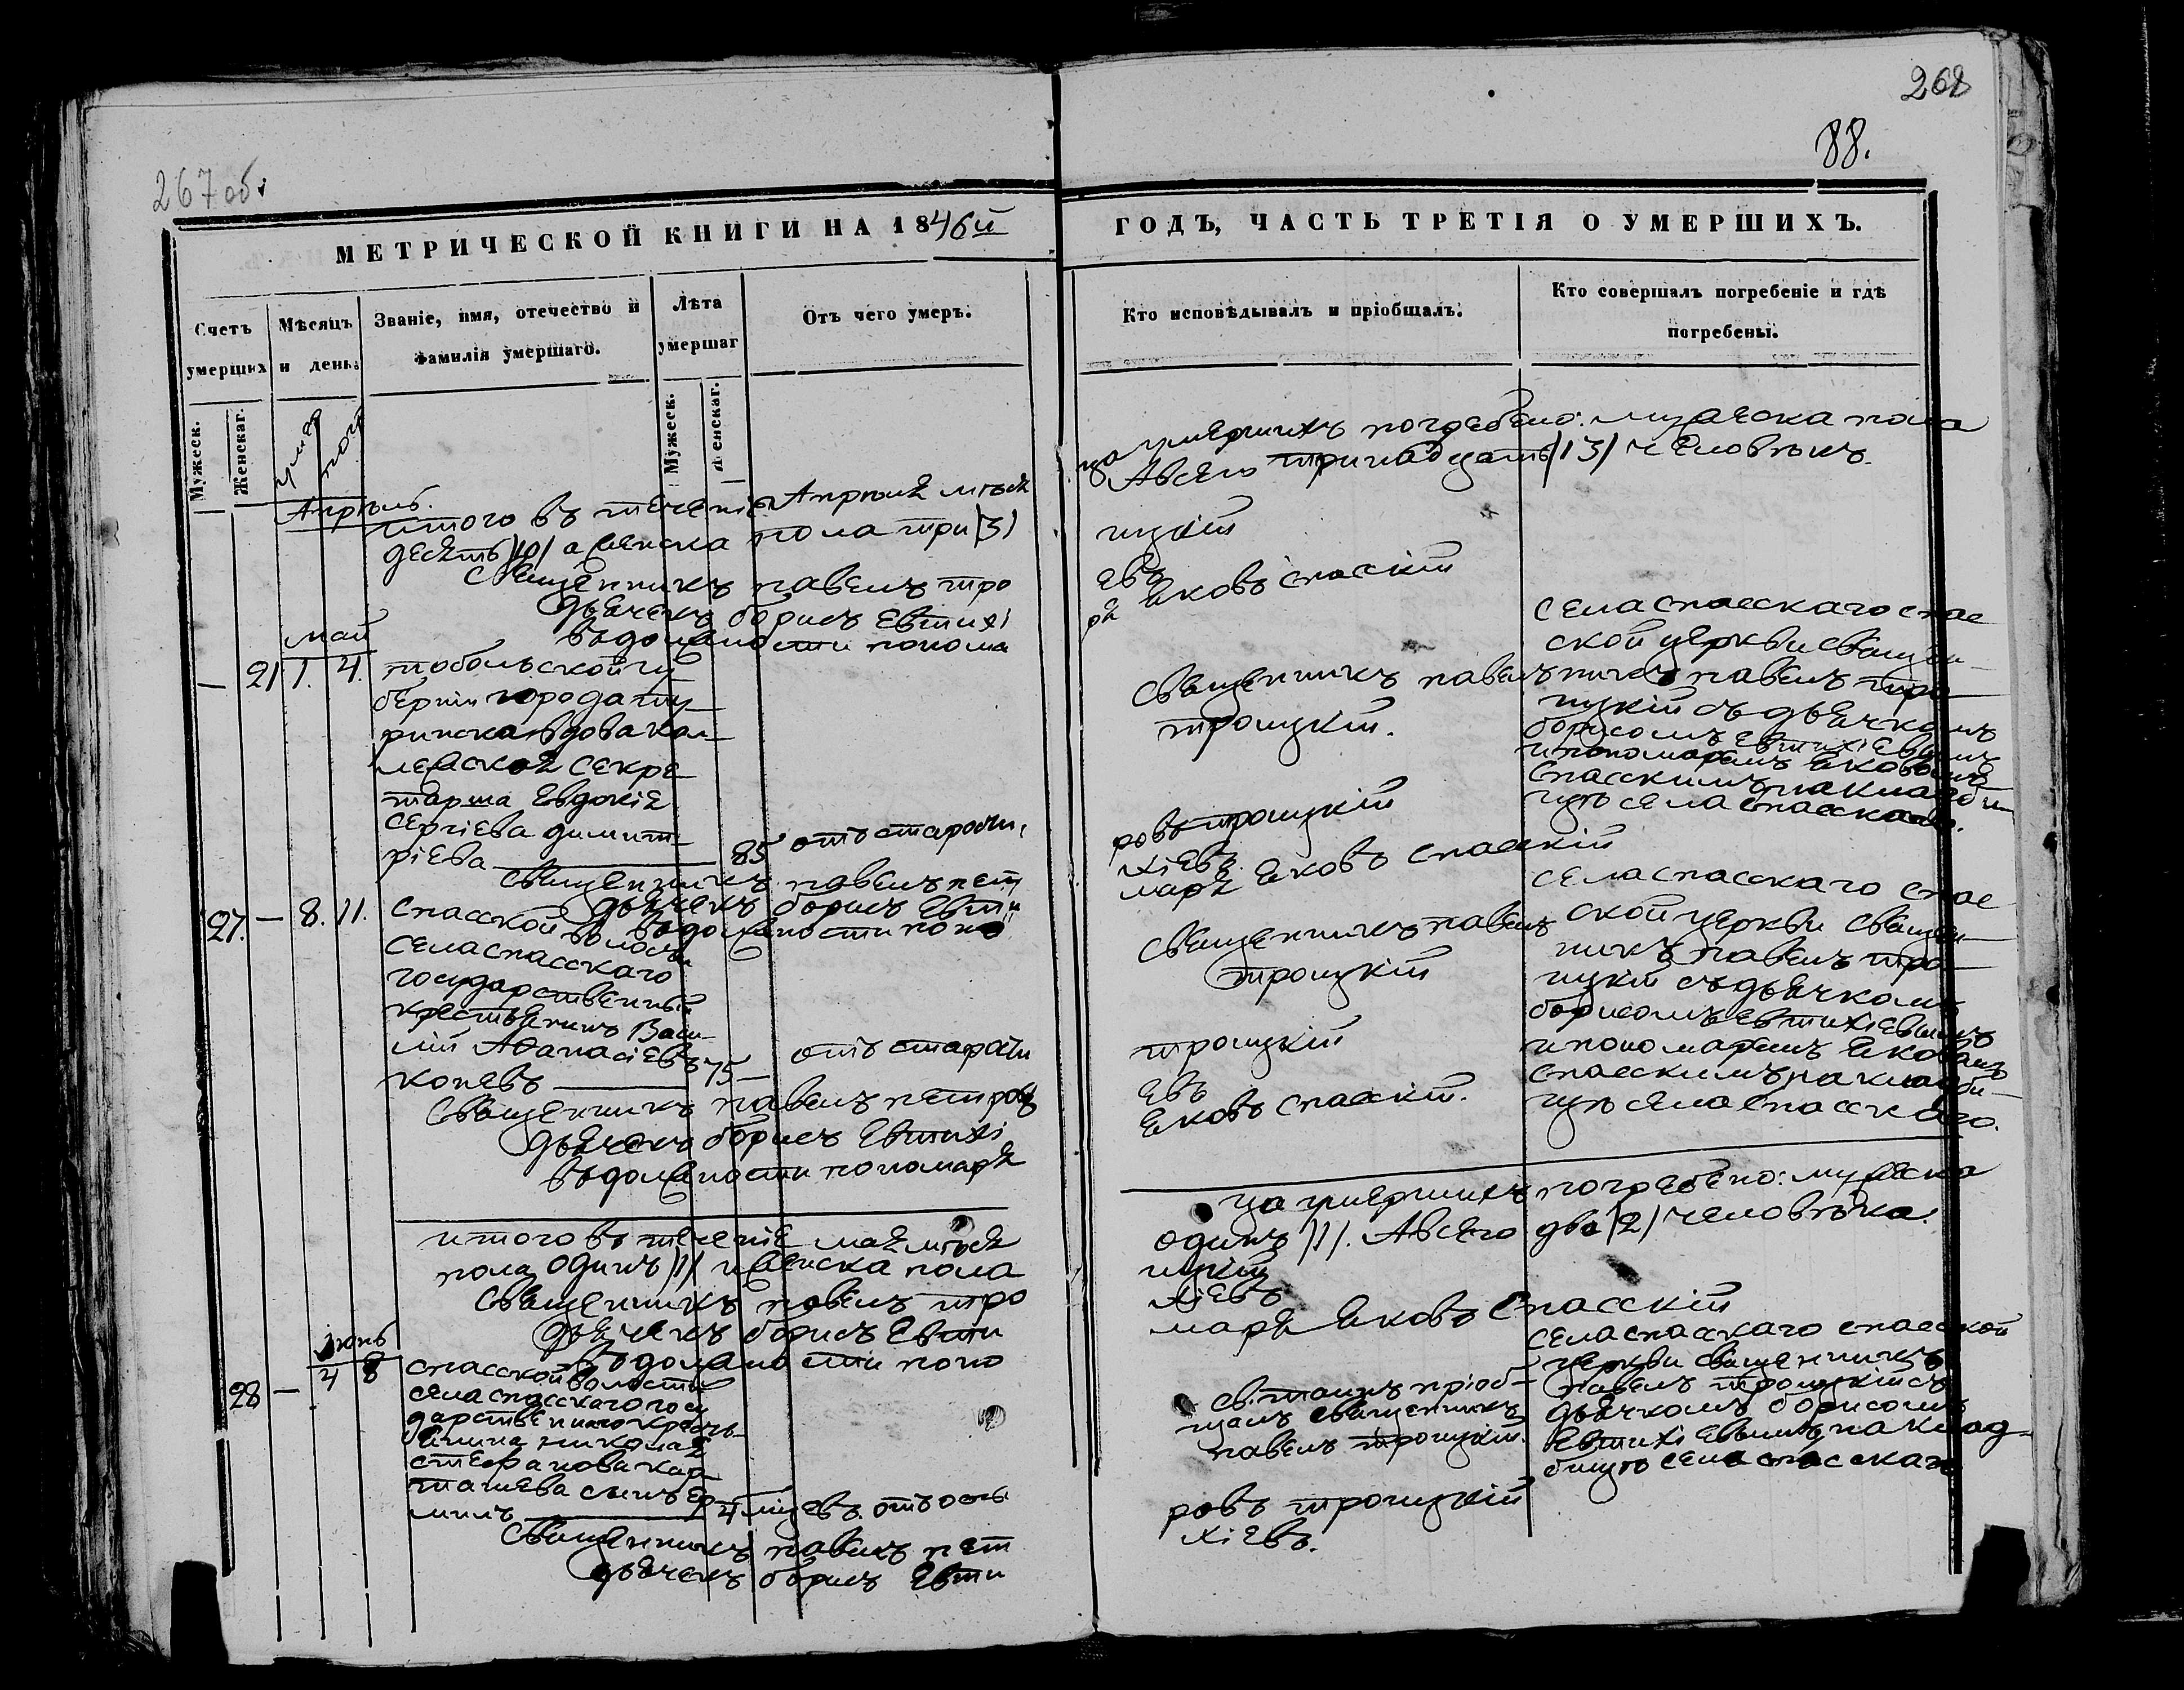 268
88.
267 об.
МЕТРИЧЕСКОЙ КНИГИ НА 1846й
ГОДЪ, ЧАСТЬ ТРЕТІЯ О УМЕРШИХЪ.
Счетъ умерших
Мѣсяцъ и день:
Званіе, имя, отечество и фамилія умершаго.
Лѣта умершаг
Отъ чего умеръ.
Кто исповѣдывалъ и пріобщалъ.
Кто совершалъ погребеніе и гдѣ погребены.
Мужеск.
Женскаг.
умер
погр
Мужеск.
Женскаг.
Апрѣль.
итого въ теченіе Апрѣля мѣся
ца умершихъ погребено: мужеска пола
десять /10/ а женска пола три /3/
Авсего тринадцать /13/ человѣкъ.
Священникъ павелъ тро
ицкій
дьячекъ борисъ Евтихі
евъ
въ должности понома
ря яковъ спаскій
май
– 21 1. 4.
тобольской гу
берніи города ту
ринска вдова кол
лежская секре
тарша Евдокія
Сергіева димит
ріева 85
отъ старости,
священникъ павелъ
троицкій.
села спасскаго спас
ской церкви священ
никъ павелъ тро
ицкій съ дьячкомъ
борисомъ евтихіевымъ
и пономаремъ яковомъ
спасскимъ на кладби
щѣ села спасскаго.
священникъ павелъ пет
ровъ троицкій
дьячекъ борисъ Евти
хіевъ
въ должности поно
маря яковъ спасскій
27. – 8. 11.
спасской волости
села спасскаго
государственный
крестьянинъ Васи
лій Афанасіевъ
коневъ 75 –
отъ старости
священникъ павелъ
троицкій
села спасскаго спас
ской церкви священ
никъ павелъ тро
ицкій съ дьячкомъ
борисомъ евтихіевымъ
и пономаремъ яковомъ
спасскимъ на кладби
щѣ села спасскаго.
священникъ павелъ петровъ
троицкій
дьячекъ борисъ Евтихі
евъ
въ должности пономаря
яковъ спаскій.
итого въ теченіе мая мѣся
ца умершихъ погребено: мужеска
пола одинъ /1/ и женска пола
одинъ /1/. Авсего два /2/ человѣка.
священникъ павелъ тро
ицкій
дьячекъ борисъ Евти
хіевъ
въ должности поно
маря яковъ Спасскій
іюнь
28 – 4 8
спасской волости
села спасскаго госу
дарственнаго кресть
янина николая
стефанова кар
ташева сынъ Ер
милъ 4 мцевъ. отъ оспы
св. таинъ пріоб
щалъ священникъ
павелъ троицкій.
села спасскаго спасской
церкви священникъ
павелъ троицкій съ
дьячкомъ борисомъ
Евтихіевымъ на клад
бищѣ села спасскаго
священникъ павелъ пет
ровъ троицкій
дьячекъ борисъ Евти
хіевъ.